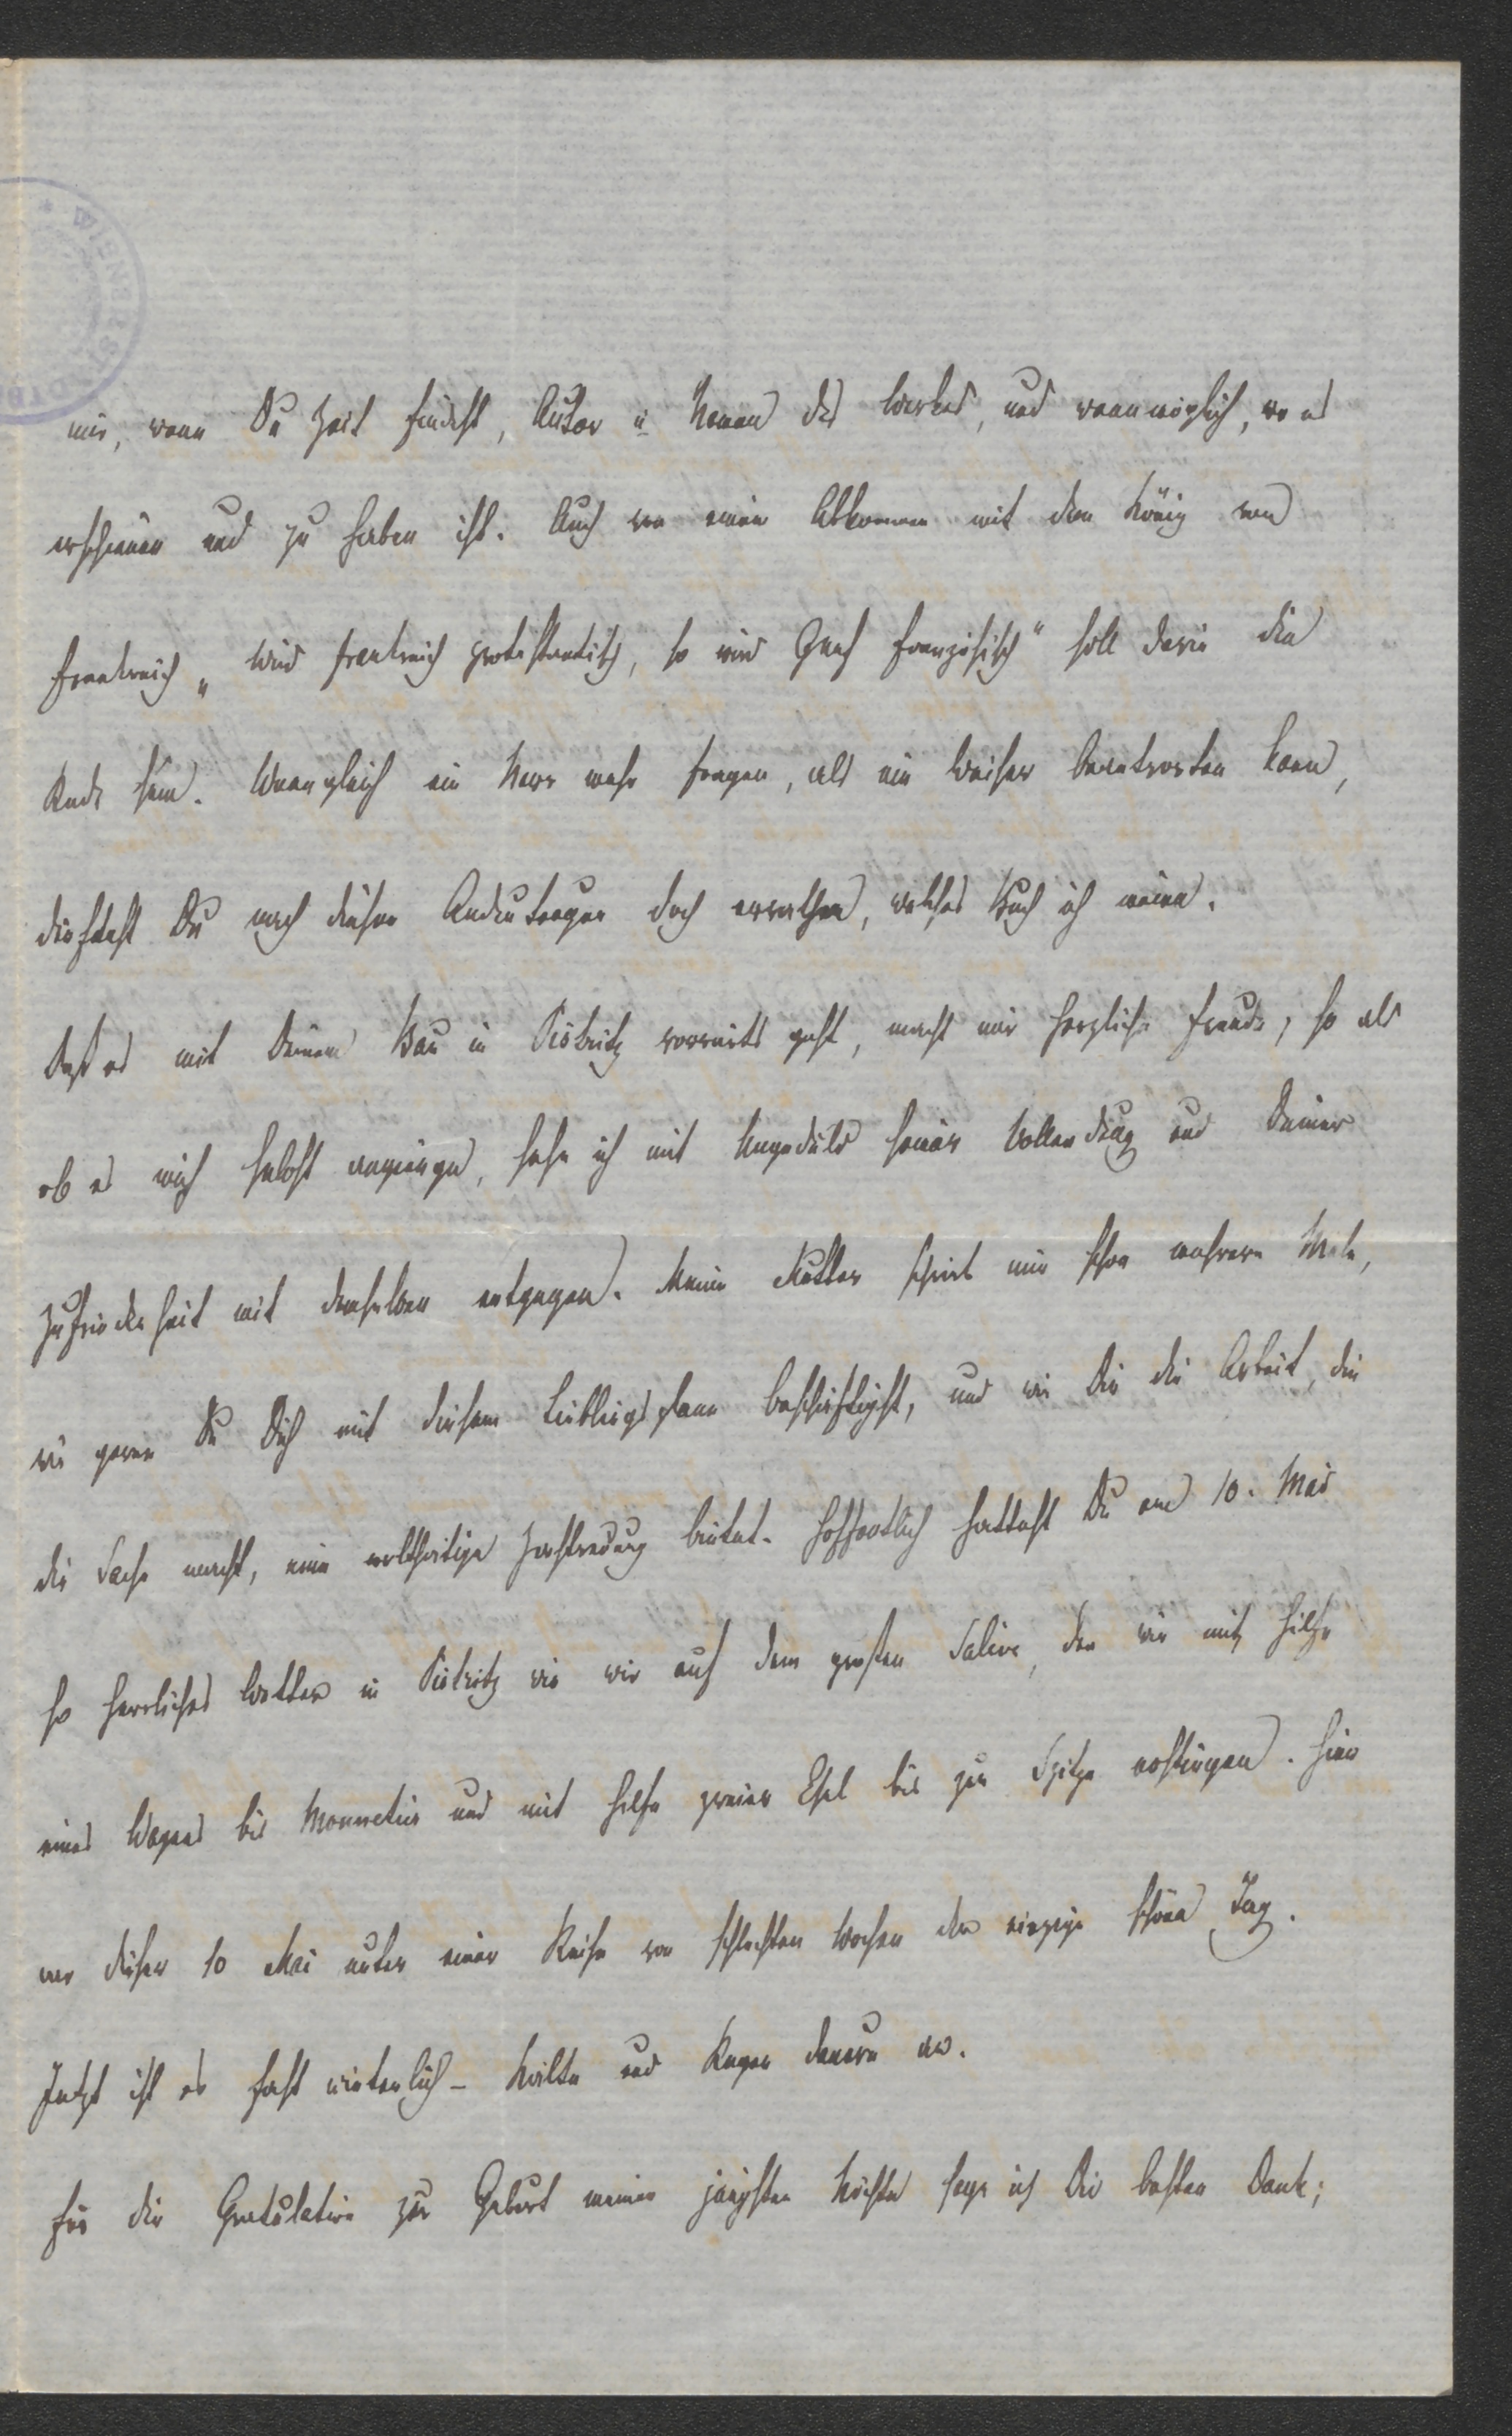 WIENER STADTB
mir, wenn Du Zeit findest, Autor u Namen des Werkes, und wenn möglich, wo es
erschienen und zu haben ist. Auch von einem Abkommen mit dem König von
Frankreich „Wird Frankreich protestantisch, so wird Genf französisch“ soll darin die
Rede sein. Wenngleich ein Narr mehr fragen, als ein Weiser beantworten kann,
dürftest Du nach diesen Andeutungen doch errathen, welches Buch ich meine.
Daß es mit Deinem Bau in Pistritz vorwärts geht, macht mir herzliche Freude; so als
ob es mich selbst anginge, sehe ich mit Ungeduld seiner Vollendung und Deiner
Zufriedenheit mit demselben entgegen. Meine Mutter schrieb mir schon mehrere Male,
wie gerne Du Dich mit diesem Lieblingsplane beschäftigst, und wie Dir die Arbeit, die
die Sache macht, eine wolthätige Zerstreuung bietet. Hoffentlich hattest Du am 10. Mai
so herrliches Wetter in Pistritz wie wir auf dem großen Salève, den wir mit Hilfe
eines Wagens bis Monnetier und mit Hilfe zweier Esel bis zur Spitze erstiegen. Hier
war dieser 10 Mai unter einer Reihe von schlechten Wochen der einzige schöne Tag.
Jetzt ist es fast winterlich – Kälte und Regen dauern an.
Für die Gratulation zur Geburt meiner jüngsten Nichte sage ich Dir besten Dank;